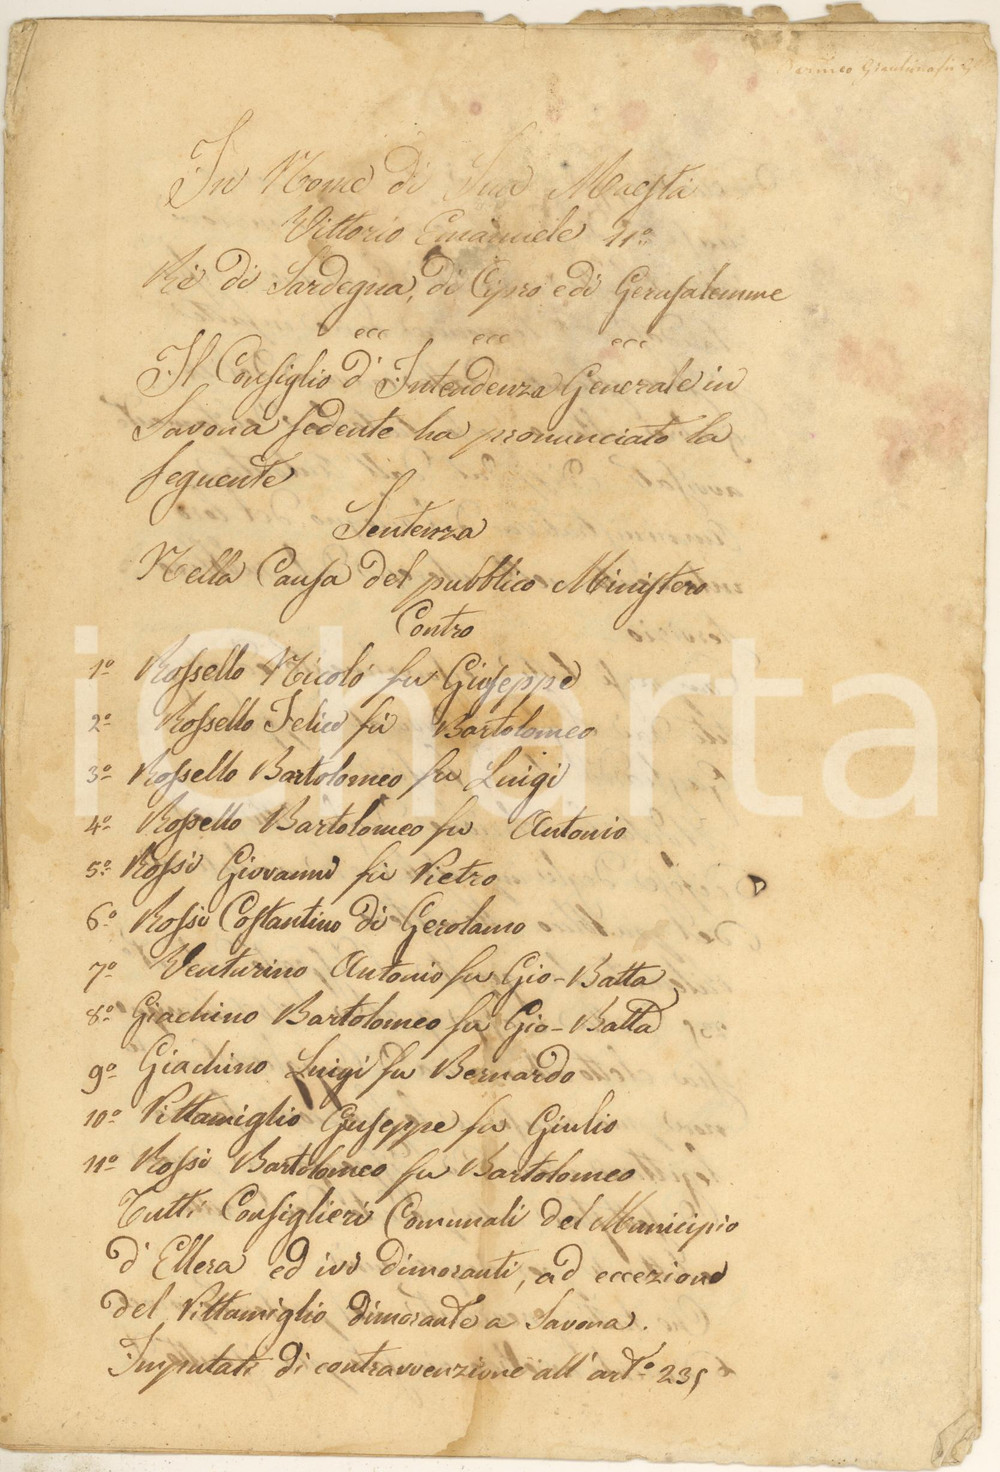 In Nome di Sua Maestà
Vittorio Emanuele II°
Re di Sardegna, di Cipro e di Gerusalemme
ecc ecc ecc
Il Consiglio d'Intendenza Generale in
Savona sedente ha pronunciato la
seguente
Sentenza
Nella Causa del pubblico Ministero
Contro
1° Rossello Nicolò fu Giuseppe
2° Rossello Felice fu Bartolomeo
3° Rossello Bartolomeo fu Luigi
4° Rossello Bartolomeo fu Antonio
5° Rossi Giovanni fu Pietro
6° Rossi Costantino di Gerolamo
7° Venturino Antonio fu Gio-Batta
8° Giachino Bartolomeo fu Gio-Batta
9° Giachino Luigi fu Bernardo
10° Vittamiglio Giuseppe fu Giulio
11° Rossi Bartolomeo fu Bartolomeo
Tutti Consiglieri Comunali del Municipio
d'Ellera ed ivi dimoranti, ad eccezione
del Vittamiglio dimorante a Savona.
Imputati di contravvenzione all'art.° 235
iCharta